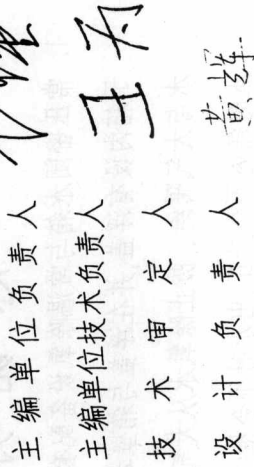 主编单位负责人
主编单位技术负责人
技术审定人 王为
设计负责人 黄辉